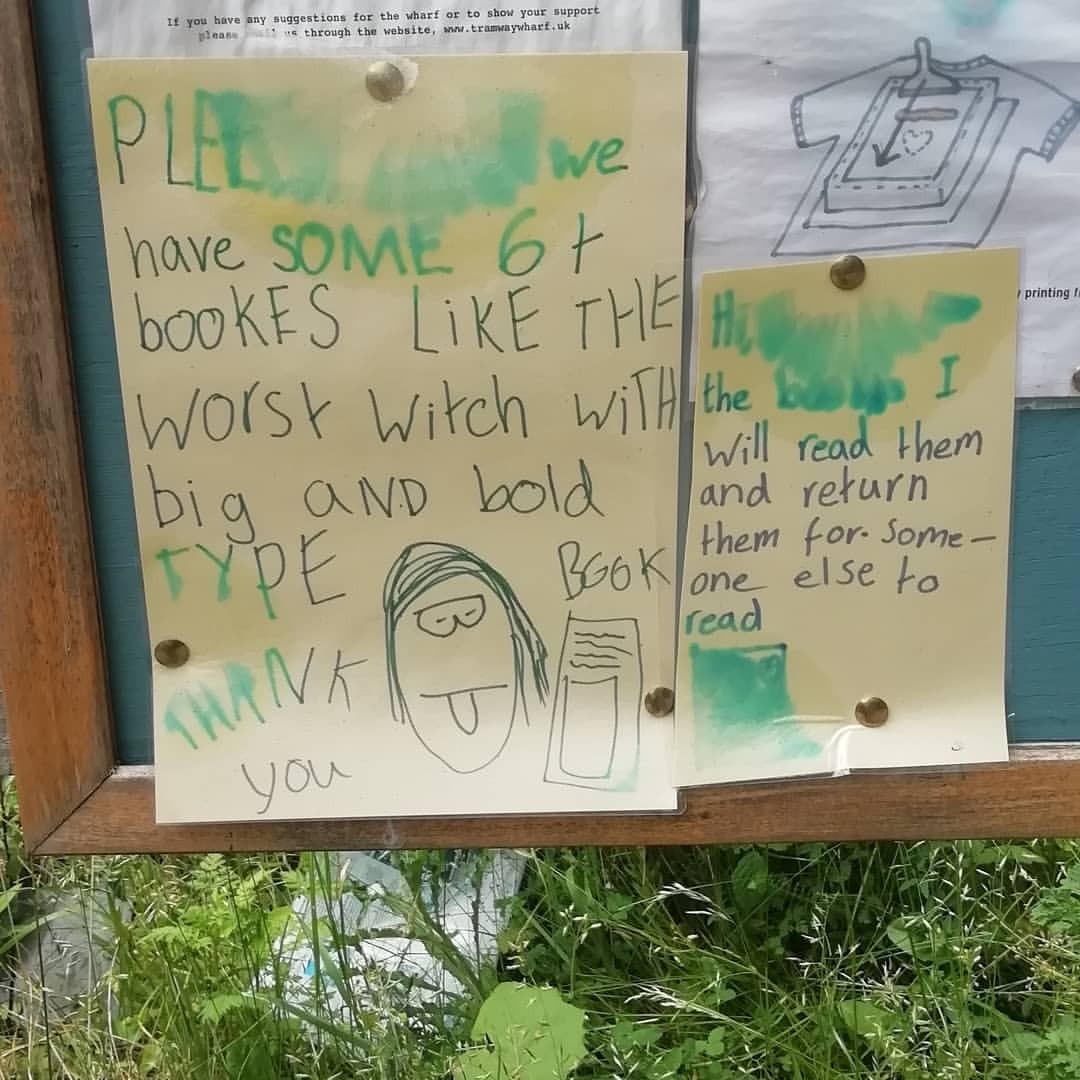 If you have any suggestions for the wharf or to show your support
please us through the website, www.tramwaywharf.uk
PLE we
have SOME 6+
bookES LiKE THE
worst witch wiTH
big AND bold
TYPE
BOOK
THANK
you
printing
Hi,
the I
will read them
and return
them for. some-
one else to
read